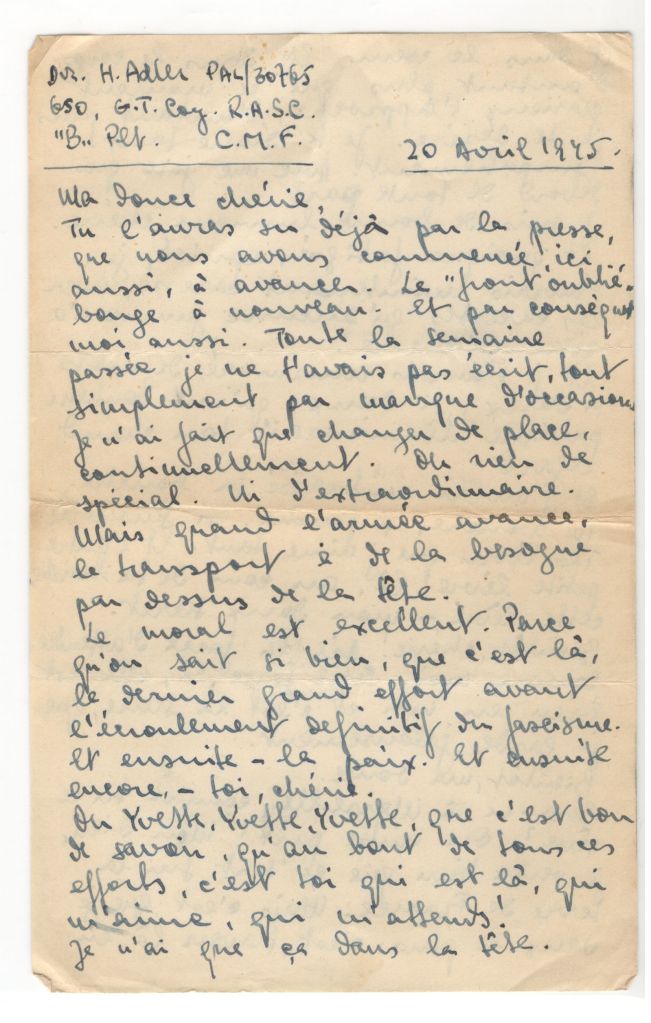 Dvr. H. Adler PAL/30765
650, G.T. Coy. R.A.S.C.
"B" Plt. C.M.F.
20 Avril 1945.
Ma douce chérie,
Tu l'auras su déjà par la presse,
que nous avons commencé ici
aussi, à avancer. Le "front oublié"
bouge à nouveau. Et par conséquent
moi aussi. Toute la semaine
passée je ne t'avais pas écrit, tout
simplement par manque d'occasion.
Je n'ai fait que changer de place,
continuellement. Du rien de
spécial. Ni d'extraordinaire.
Mais quand l'armée avance,
le transport à de la besogne
par dessus de la tête.
Le moral est excellent. Parce
qu'on sait si bien, que c'est là,
le dernier grand effort avant
l'écroulement definitif du fascisme.
Et ensuite - la paix. Et ensuite
encore, - toi, chérie.
Du Yvette, Yvette, Yvette, que c'est bon
de savoir, qu'au bout de tous ces
efforts, c'est toi qui est là, qui
m'aime, qui m'attends!
Je n'ai que ça dans la tête.